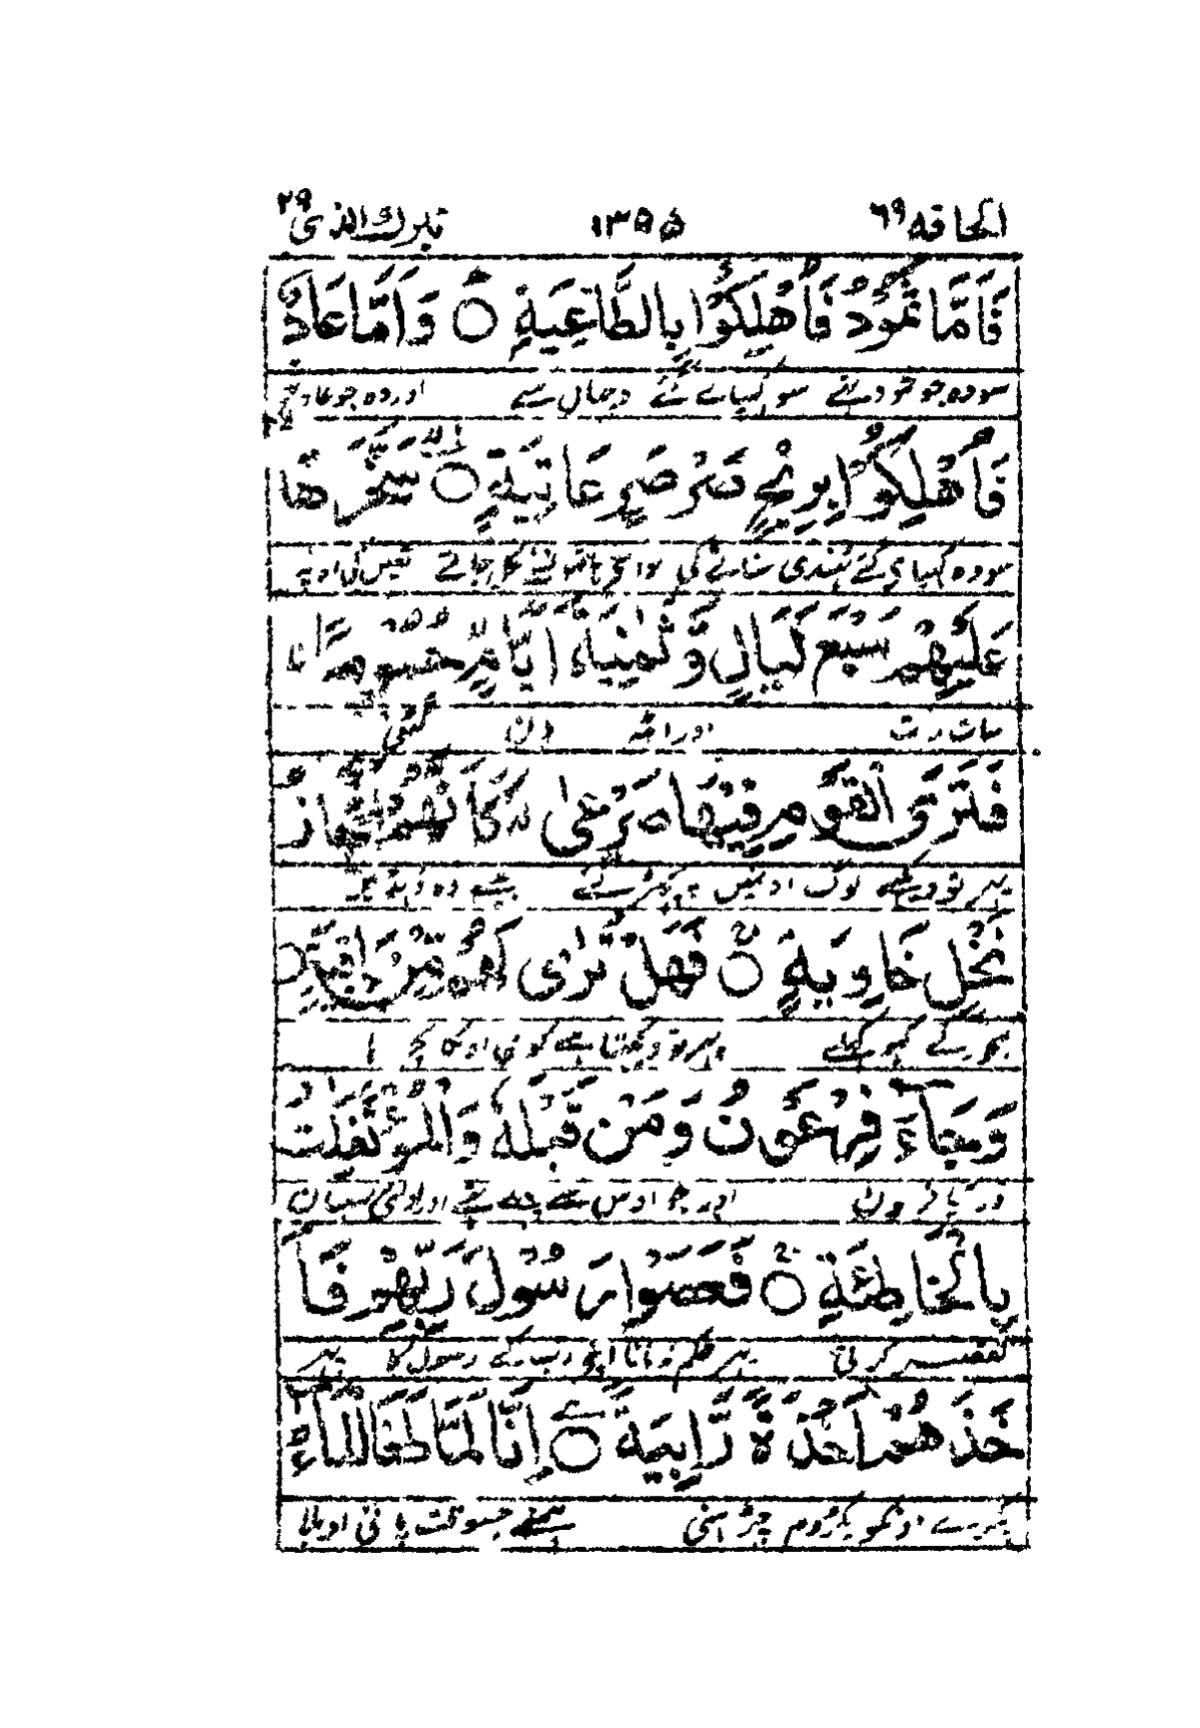 الحاقه ٦٩ ١٣٥٥ تبرك الذى ٢٩
فَاَمَّا ثَمُوْدُ فَاُهْلِكُوْا بِالطَّاغِيَةِ ○ وَاَمَّا عَادٌ
سو وہ جو ثمود تھے سو کھپائے گئے اور وہ جو عاد تھے
فَاُهْلِكُوْا بِرِيْحٍ صَرْصَرٍ عَاتِيَةٍ ○ سَخَّرَهَا
سو وہ کھپائے گئے ٹھنڈی سناٹے کی
عَلَيْهِمْ سَبْعَ لَيَالٍ وَّثَمٰنِيَةَ اَيَّامٍ حُسُوْمًا
سات رات اور آٹھ دن
فَتَرَى الْقَوْمَ فِيْهَا صَرْعٰى كَاَنَّهُمْ اَعْجَازُ
پھر تو دیکھے لوگ اونمیں بچھڑ گئے جیسے وہ
نَخْلٍ خَاوِيَةٍ ○ فَهَلْ تَرٰى لَهُمْ مِّنْۢ بَاقِيَةٍ
کھجور کے کھوکھلے پھر تو دیکھتا ہے کوئی اونکا بچ
وَجَآءَ فِرْعَوْنُ وَمَنْ قَبْلَهٗ وَالْمُؤْتَفِكٰتُ
اور آیا فرعون اور جو اوس سے پہلے تھے اور اولٹی بستیان
بِالْخَاطِئَةِ ○ فَعَصَوْا رَسُوْلَ رَبِّهِمْ فَاَ
تقصیر کرتے پھر حکم نہ مانا اپنے رب کے رسول کا پھر
خَذَهُمْ اَخْذَةً رَّابِيَةً ○ اِنَّا لَمَّا طَغَا الْمَآءُ
اونکو ہمنے جسوقت پانی اوبلا